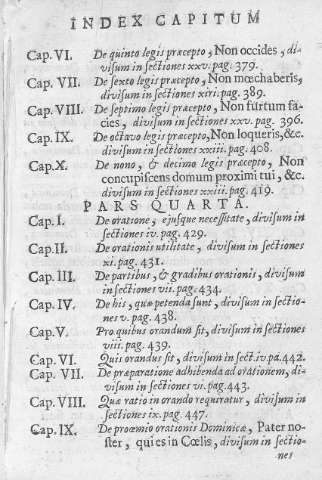 INDEX CAPITUM
Cap. VI. De quinto legis præcepto, Non occides, di-
visum in sectiones xxv. pag. 379.
Cap. VII. De sexto legis præcepto, Non mœchaberis,
divisum in sectiones xiri. pag. 389.
Cap. VIII. De septimo legis præcepto, Non furtum fa-
cies, divisum in sectiones xxv. pag. 396.
Cap. IX. De octavo legis præcepto, Non loqueris, &c.
divisum in sectiones xxiii. pag. 408.
Cap. X. De nono, & decimo legis præcepto, Non
concupiscens domum proximi tui, &c.
divisum in sectiones xxiii. pag. 419.
PARS QUARTA.
Cap. I. De oratone, ejusque necessitate, divisum in
sectiones iv. pag. 429.
Cap. II. De orationis utilitate, divisum in sectiones
xi. pag. 431.
Cap. III. De partibus, & gradibus orationis, divisum
in sectiones vii. pag. 434.
Cap. IV. De his, quæ petenda sunt, divisum in sectio-
nes v. pag. 438.
Cap. V. Pro quibus orandum sit, divisum in sectiones
viii. pag. 439.
Cap. VI. Quis orandus sit, divisum in sect. iv. pa. 442.
Cap. VII. De præparatione adhibenda ad orationem, di-
visum in sectiones vi. pag. 443.
Cap. VIII. Quæ ratio in orando requiratur, divisum in
sectiones ix. pag. 447.
Cap. IX. De proœmio orationis Dominicæ, Pater no-
ster, qui es in Cœlis, divisum in sectio-
nes